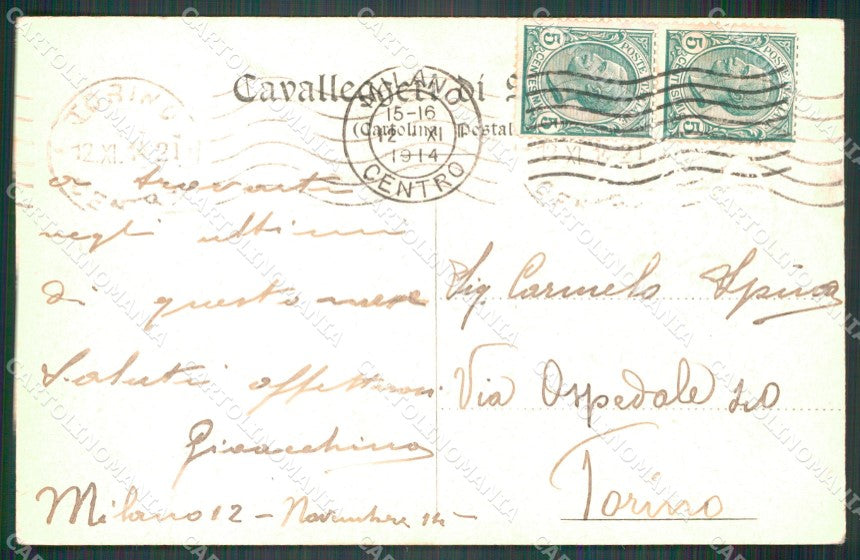 Cavalleggeri di
(Cartolina Postal
MILANO
15-16
12 XI
1914
CENTRO
TORINO
12.XI.14.21
POSTE ITALIANE
CENTESIMI
5
5
POSTE ITALIANE
CENTESIMI
5
5
a trovarti
negli ultimi
di questo mese
Saluti affettuosi
Gioacchino
Milano 12 - Novembre 14
Sig. Carmelo Spina
Via Ospedale
Torino
CARTOLINOMANIA